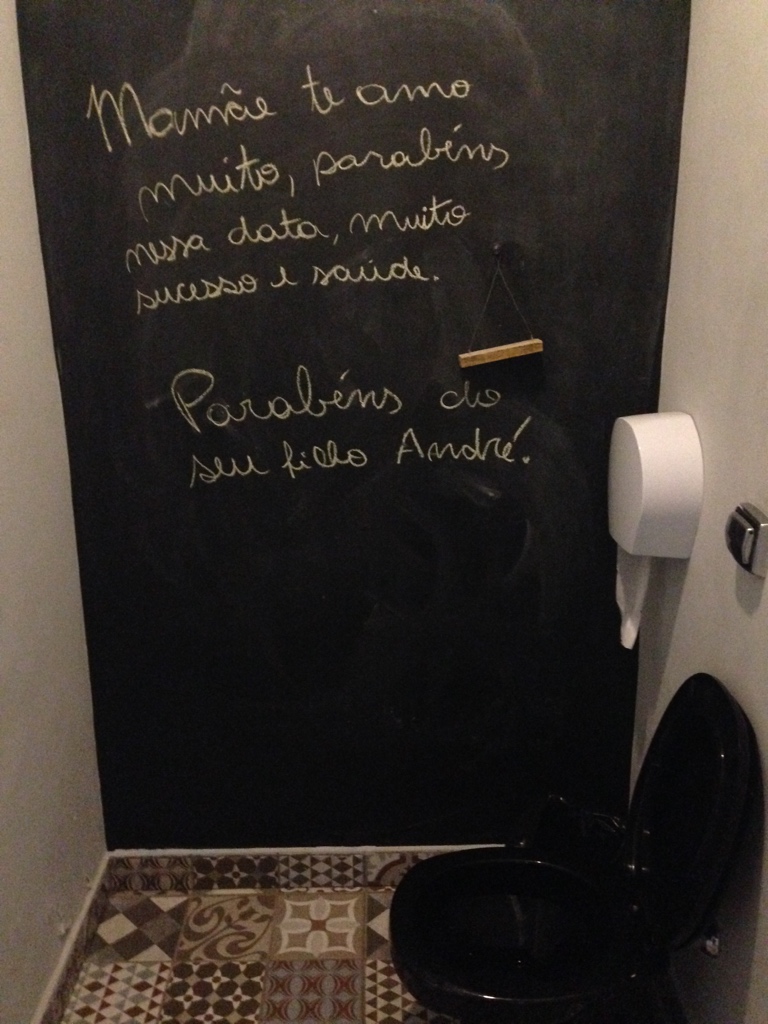 Mamãe te amo
muito, parabéns
nessa data, muito
sucesso e saúde.
Parabéns do
seu filho André.